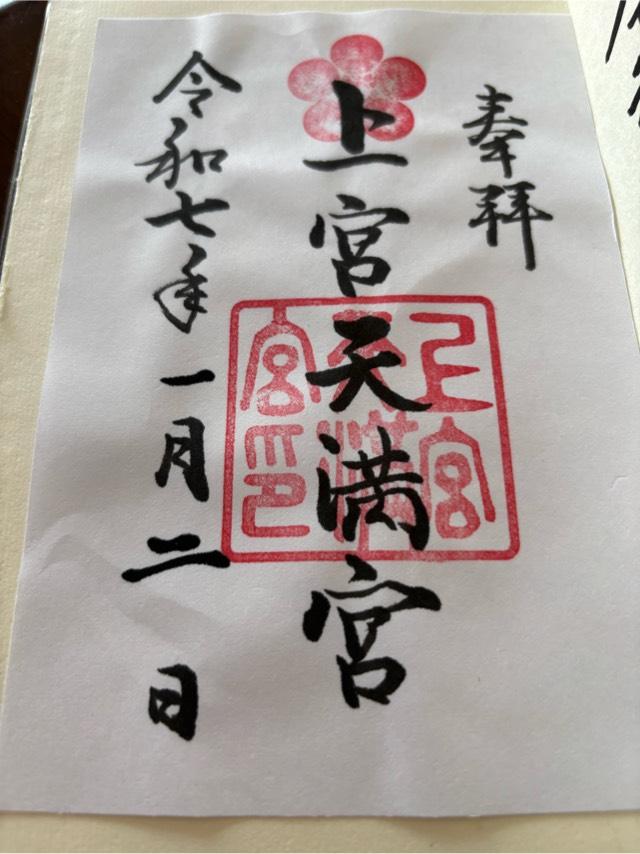 奉拝
上宮天満宮
令和七年一月二日
上宮
天満
宮印